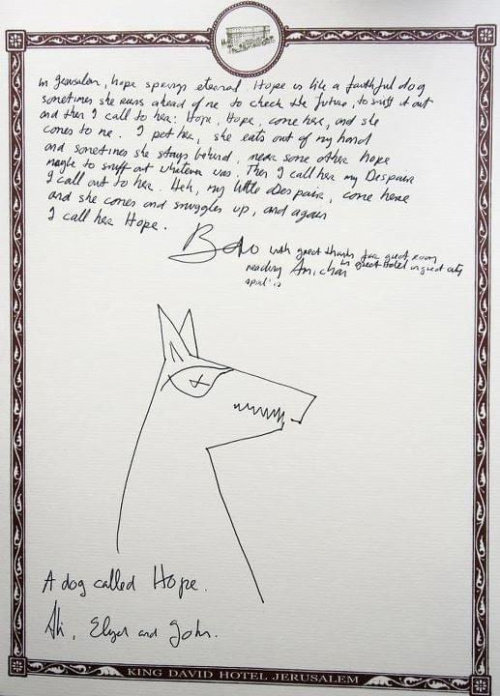 in Jerusalem, hope springs eternal. Hope is like a faithful dog
sometimes she runs ahead of me to check the future, to sniff it out
and then I call to her: Hope, Hope, come here, and she
comes to me. I pet her, she eats out of my hand
and sometimes she stays behind, near some other hope
maybe to sniff out whatever was. Then I call her my Despair
I call out to her. Heh, my little Despair, come here
and she comes and snuggles up, and again
I call her Hope.
Bono with great thanks for great room
reading Amichai in great Hotel in great city
A dog called Hope.
Ali, and John.
KING DAVID HOTEL JERUSALEM